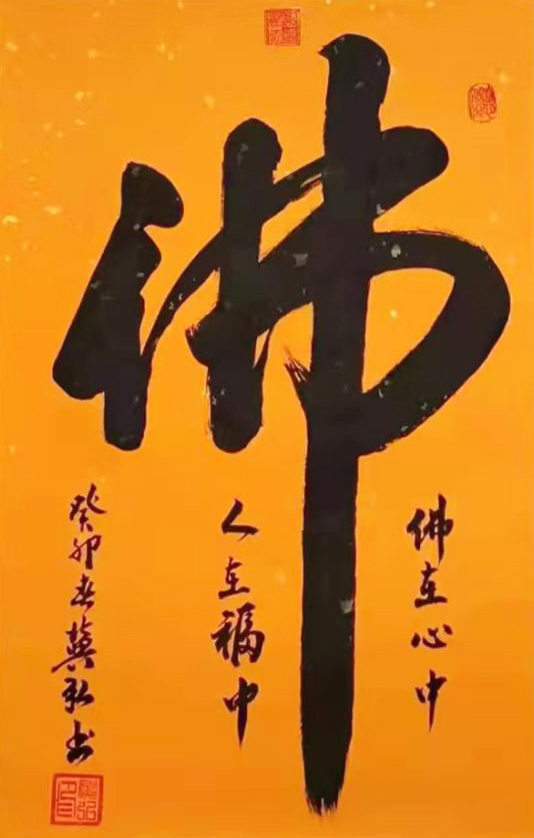 佛
佛在心中
人在福中
癸卯春冀弘书